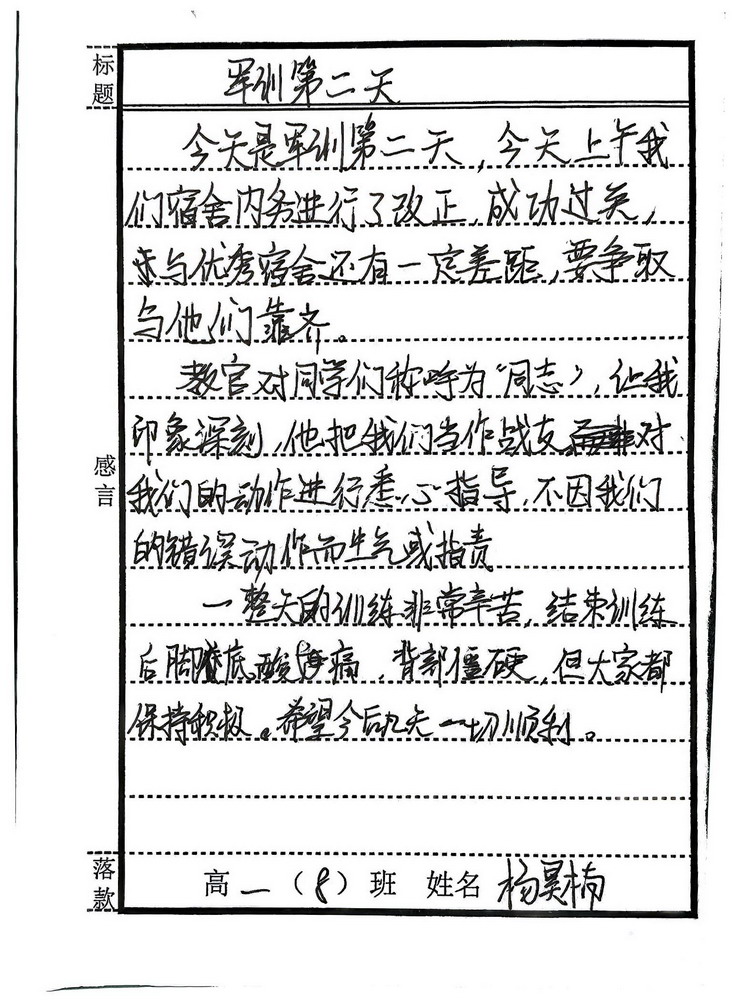 标题
军训第二天
今天是军训第二天，今天上午我
们宿舍内务进行了改正，成功过关，
与优秀宿舍还有一定差距，要争取
与他们靠齐。
教官对同学们称呼为“同志”，让我
印象深刻，他把我们当作战友，对
我们的动作进行悉心指导，不因我们
的错误动作而生气或指责
一整天的训练非常辛苦，结束训练
后脚底酸痛，背部僵硬，但大家都
保持积极。希望今后几天一切顺利。
感言
落款
高一（8）班 姓名 杨昊楠